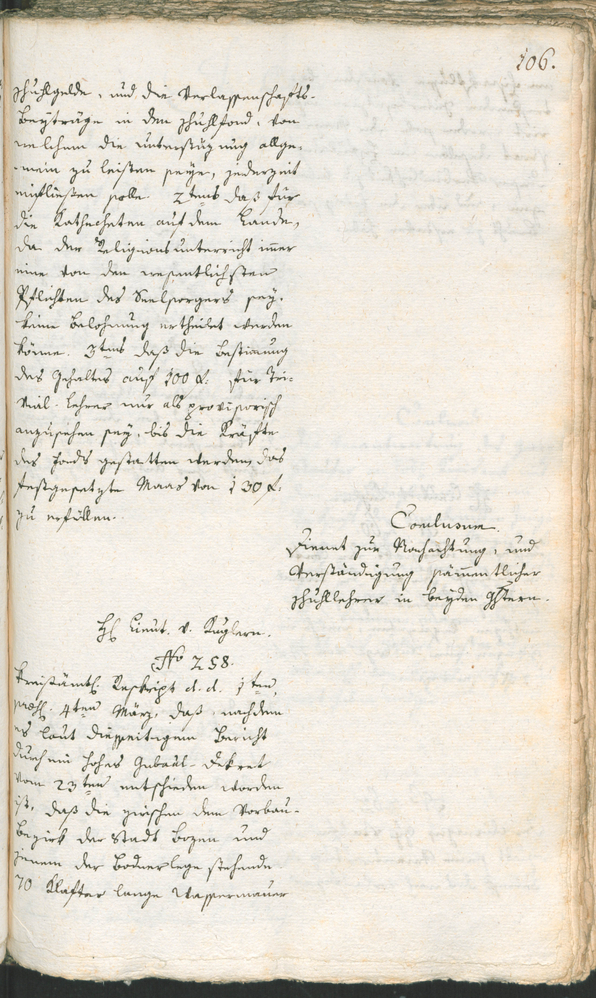 106.
Schuhlgelde, und die Verlassenschafts-
Beyträge in den Schuhlfond, von
welchem die Unterstüzung allge-
-mein zu leisten seye, jederzeit
einfließen solle. 2tens daß für
die Katecheten auf dem Lande,
da der Religionsunterricht immer
eine von den wesentlichsten
Pflichten des Seelsorgers sey,
keine Belohnung ertheilet werden
könne. 3tens daß die Bestimung
des Gehaltes auf 100 f. für Tri-
vial-Lehrer nur als provisorisch
anzusehen sey, bis die Kräfte
des Fonds gestatten werden, das
festgesetzte Maas von 130 f.
zu erfüllen.
Conclusum.
Dienet zur Nachachtung, und
Verständigung sämentlicher
Schuhllehrer in beyden
H. Lieut. v. Kuglern.
No 258.
Kreisämtl. Reskript d. d. 1ten,
präs. 4ten März, daß, nachdem
es laut diesseitigem Bericht
durch ein hohes Gubenial Dekret
vom 23ten entschieden worden
ist, daß die zwischen dem Verbau-
Bezirk der Stadt Bozen und
jenem der Bodnerlege stehende
70 Klafter lange Wassermauer